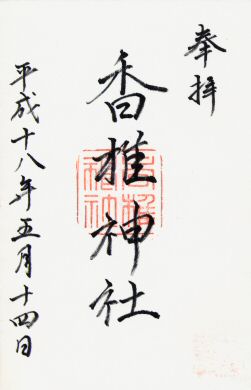 奉拝
香椎神社
平成十八年五月十四日